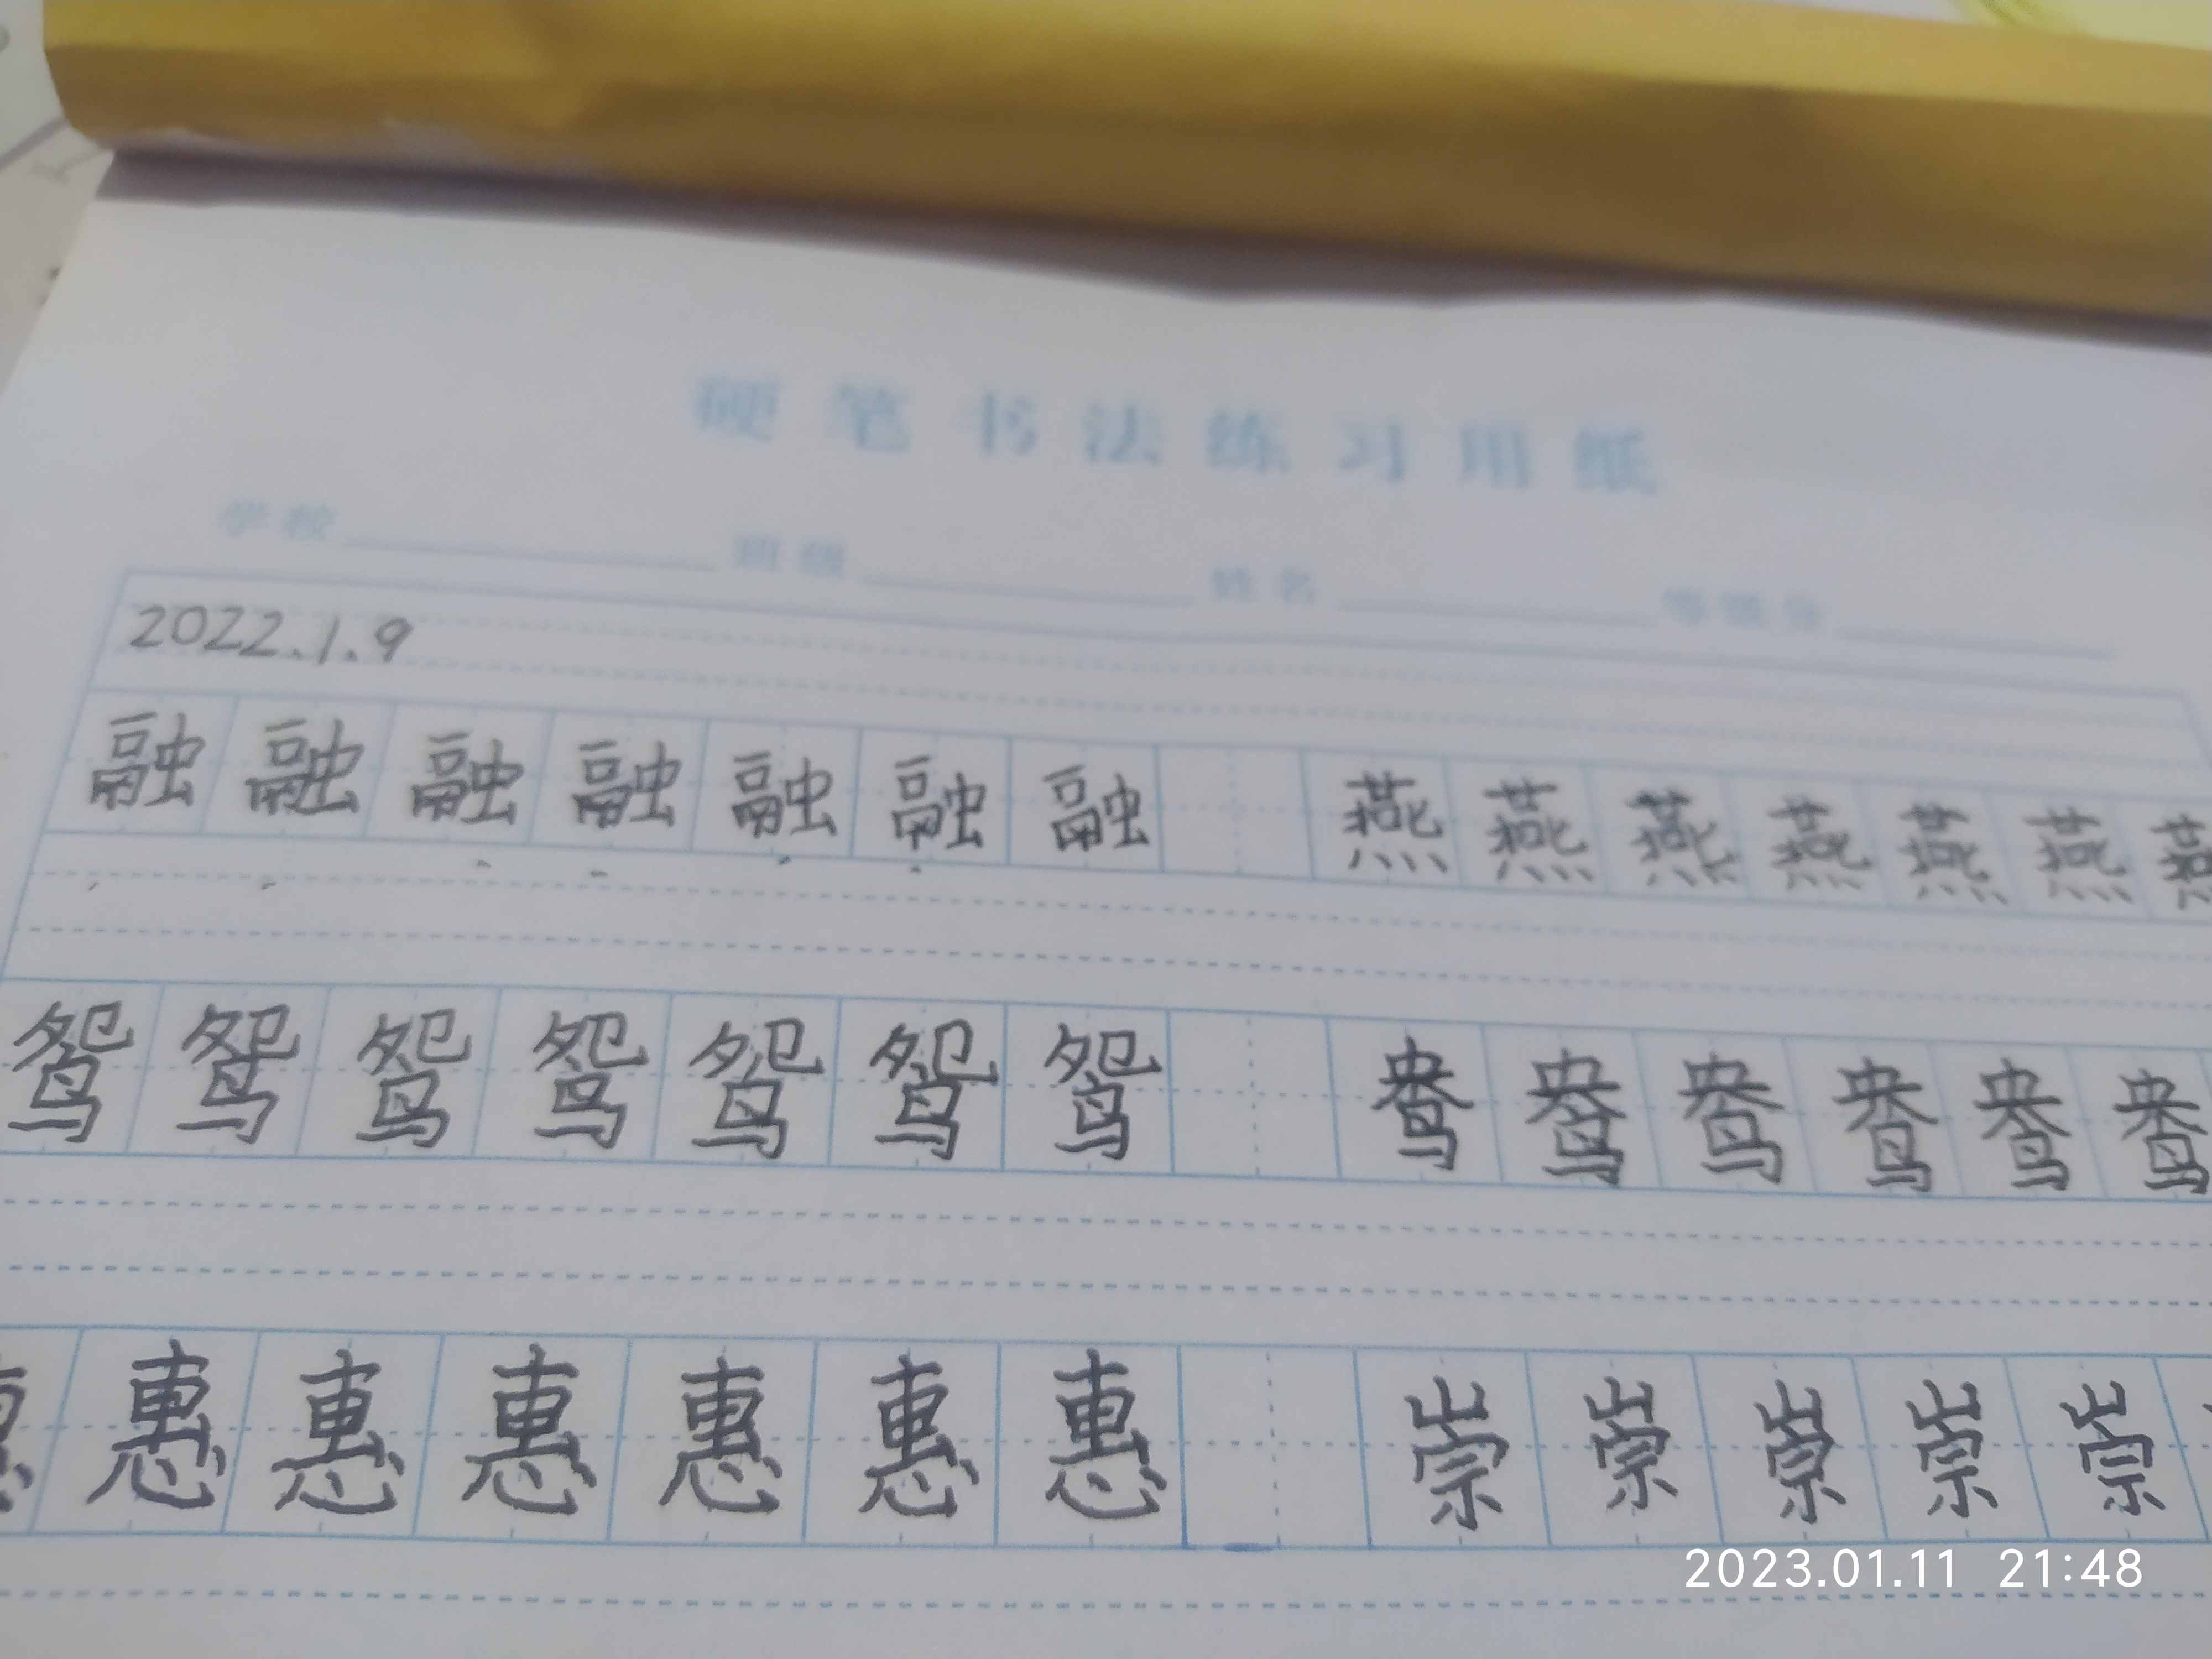 硬笔书法练习用纸
学校 班级 姓名 等级分
2022.1.9
融融融融融融融 燕燕燕燕燕燕燕
鸳鸳鸳鸳鸳鸳鸳 鸯鸯鸯鸯鸯鸯
惠惠惠惠惠惠惠 崇崇崇崇崇
2023.01.11 21:48